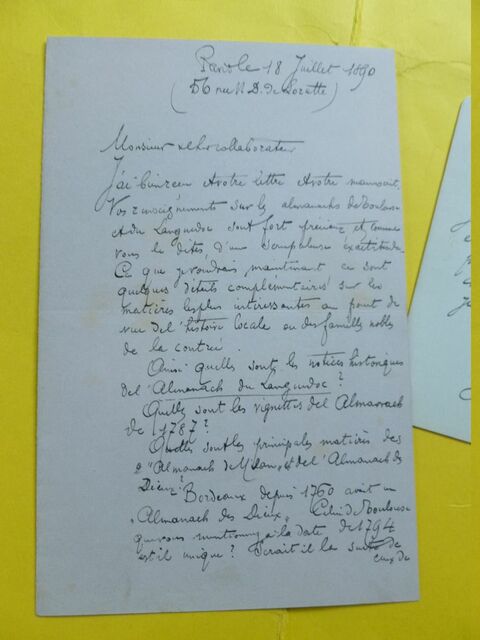 Paris le 18 Juillet 1890
(56 rue N. D. de Lorette)
Monsieur et cher collaborateur
J'ai bien reçu et votre lettre et votre manuscrit.
Vos renseignements sur les almanachs de Toulouse
et du Languedoc sont fort précieux et, comme
vous le dites, d'une scrupuleuse exactitude.
Ce que je voudrais maintenant ce sont
quelques détails complémentaires sur les
matières les plus intéressantes au point de
vue de l'histoire locale ou des familles nobles
de la contrée.
Ainsi quelles sont les notices historiques
de l'Almanach du Languedoc ?
Quelles sont les vignettes de l'Almanach
de 1787 ?
Quelles sont les principales matières des
"Almanach de Milan" et de l'Almanach des
Dieux ?
Bordeaux depuis 1760 avait un
"Almanach des Dieux". Celui de Toulouse
que vous mentionnez à la date de 1794
est il unique ? Serait il la suite de
ceux de